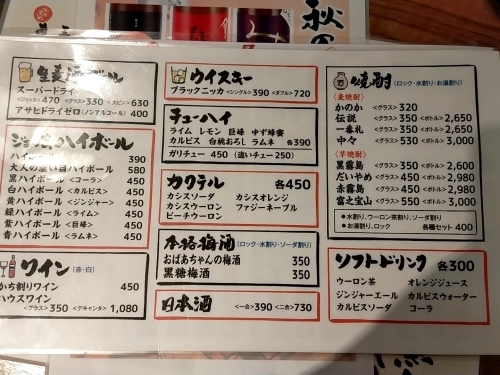 秋の
生麦酒
スーパードライ
<ジョッキ>470 <グラス>330 <大ビン>630
アサヒドライゼロ(ノンアルコール) 400
ハイボール
ハイボール 390
大人の濃い目ハイボール 580
黒ハイボール <コーラ> 450
白ハイボール <カルピス> 450
黄ハイボール <ジンジャー> 450
緑ハイボール <ライム> 450
紫ハイボール <巨峰> 450
青ハイボール <ラムネ> 450
ワイン (赤・白)
かち割りワイン 450
ハウスワイン
<グラス>350 <デキャンタ>1,080
ウイスキー
ブラックニッカ <シングル>390 <ダブル>720
チューハイ
ライム レモン 巨峰 ゆず蜂蜜
カルピス 白桃おろし ラムネ 各390
ガリチュー 450 (追いチュー250)
カクテル 各450
カシスソーダ カシスオレンジ
カシスウーロン ファジーネーブル
ピーチウーロン
本格梅酒 (ロック・水割り・ソーダ割り)
おばあちゃんの梅酒 350
黒糖梅酒 350
日本酒 <一合>390 <二合>730
焼酎 (ロック・水割り・お湯割り)
(麦焼酎)
かのか <グラス>320
伝説 <グラス>350 <ボトル>2,650
一番札 <グラス>350 <ボトル>2,650
中々 <グラス>530 <ボトル>3,000
(芋焼酎)
黒霧島 <グラス>350 <ボトル>2,600
だいやめ <グラス>450 <ボトル>2,980
赤霧島 <グラス>450 <ボトル>2,980
富乃宝山 <グラス>550 <ボトル>3,000
●水割り、ウーロン茶割り、ソーダ割り
●お湯割り、ロック 各種セット 400
ソフトドリンク 各300
ウーロン茶 オレンジジュース
ジンジャーエール カルピスウォーター
カルピスソーダ コーラ